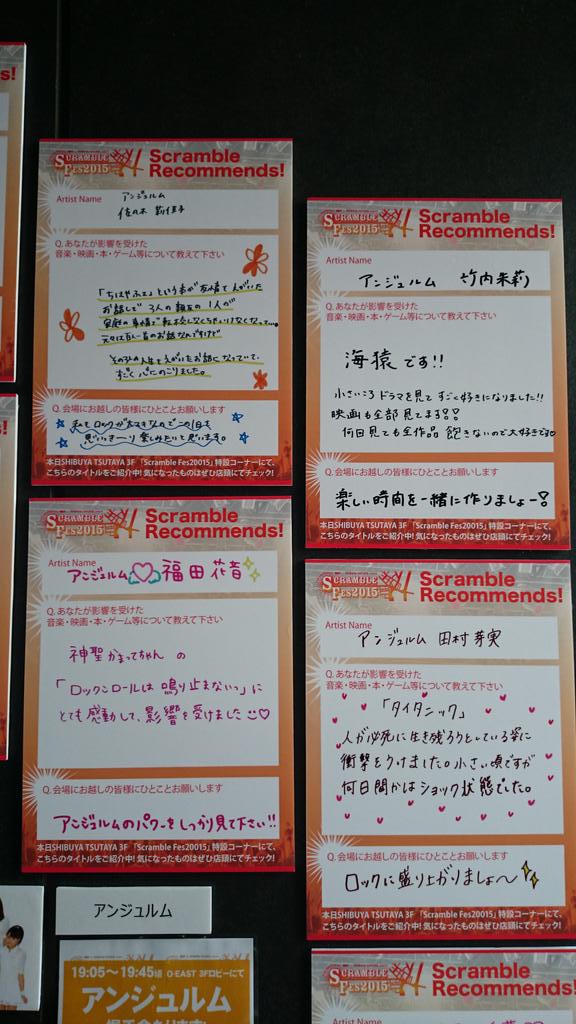 s!
SCRAMBLE
FES2015
Scramble
Recommends!
Artist Name
アンジュルム
佐々木 莉佳子
Q. あなたが影響を受けた
音楽・映画・本・ゲーム等について教えて下さい
「ちはやふる」という本が友情をえがいた
お話しで 3人の親友の1人が
家庭の事情で転校しなくちゃいけなくなっていて。
元々は百人一首のお話なんですけど
その3人の人生をえがいたお話になっていて、
すごく心にのこりました。
Q. 会場にお越しの皆様にひとことお願いします
私もロックが大すきなのでこの1日を
思いっきーり楽しみたいと思います。
本日SHIBUYA TSUTAYA 3F 「Scramble Fes20015」特設コーナーにて、
こちらのタイトルをご紹介中! 気になったものはぜひ店頭にてチェック!
SCRAMBLE
FES2015
Scramble
Recommends!
Artist Name
アンジュルム 竹内朱莉
Q. あなたが影響を受けた
音楽・映画・本・ゲーム等について教えて下さい
海猿です!!
小さいころドラマを見てすごく好きになりました!!
映画も全部見てます!!
何回見ても全作品 飽きないので大好きです♡
Q. 会場にお越しの皆様にひとことお願いします
楽しい時間を一緒に作りましょー!
本日SHIBUYA TSUTAYA 3F 「Scramble Fes20015」特設コーナーにて、
こちらのタイトルをご紹介中! 気になったものはぜひ店頭にてチェック!
SCRAMBLE
FES2015
Scramble
Recommends!
Artist Name
アンジュルム♡福田花音
Q. あなたが影響を受けた
音楽・映画・本・ゲーム等について教えて下さい
神聖かまってちゃん の
「ロックンロールは鳴り止まないっ」に
とても感動して、影響を受けました♡
Q. 会場にお越しの皆様にひとことお願いします
アンジュルムのパワーをしっかり見て下さい!!
本日SHIBUYA TSUTAYA 3F 「Scramble Fes20015」特設コーナーにて、
こちらのタイトルをご紹介中! 気になったものはぜひ店頭にてチェック!
SCRAMBLE
FES2015
Scramble
Recommends!
Artist Name
アンジュルム 田村芽実
Q. あなたが影響を受けた
音楽・映画・本・ゲーム等について教えて下さい
「タイタニック」
人が必死に生き残ろうとしている姿に
衝撃をうけました。小さい頃ですが
何日間かはショック状態でした。
Q. 会場にお越しの皆様にひとことお願いします
ロックに盛り上がりましょ〜
本日SHIBUYA TSUTAYA 3F 「Scramble Fes20015」特設コーナーにて、
こちらのタイトルをご紹介中! 気になったものはぜひ店頭にてチェック!
アンジュルム
19:05〜19:45頃 O-EAST 3Fロビーにて
アンジュルム
SCRAMBLE
FES2015
Scramble
Recommends!
Artist Name